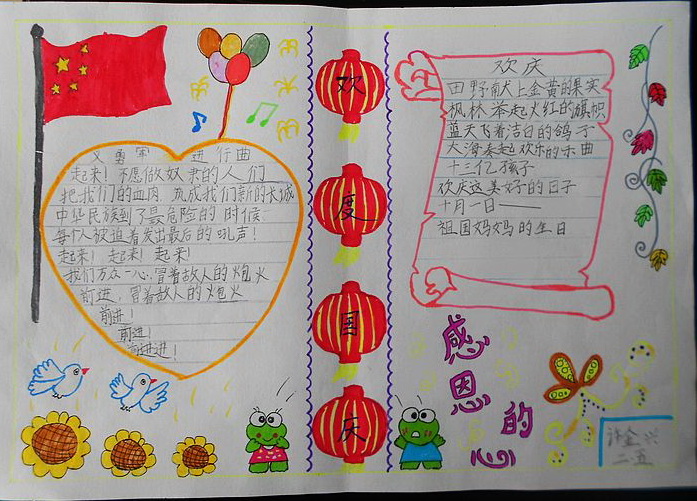 义勇军进行曲
起来！不愿做奴隶的人们
把我们的血肉，筑成我们新的长城
中华民族到了最危险的时候
每个人被迫着发出最后的吼声！
起来！起来！起来！
我们万众一心，冒着敌人的炮火
前进，冒着敌人的炮火
前进！
前进！
前进进！
欢
度
国
庆
欢庆
田野献上金黄的果实
枫林举起火红的旗帜
蓝天飞着洁白的鸽子
大海奏起欢乐的乐曲
十三亿孩子
欢庆这美好的日子
十月一日——
祖国妈妈的生日
感恩的心
许金兴
二.五